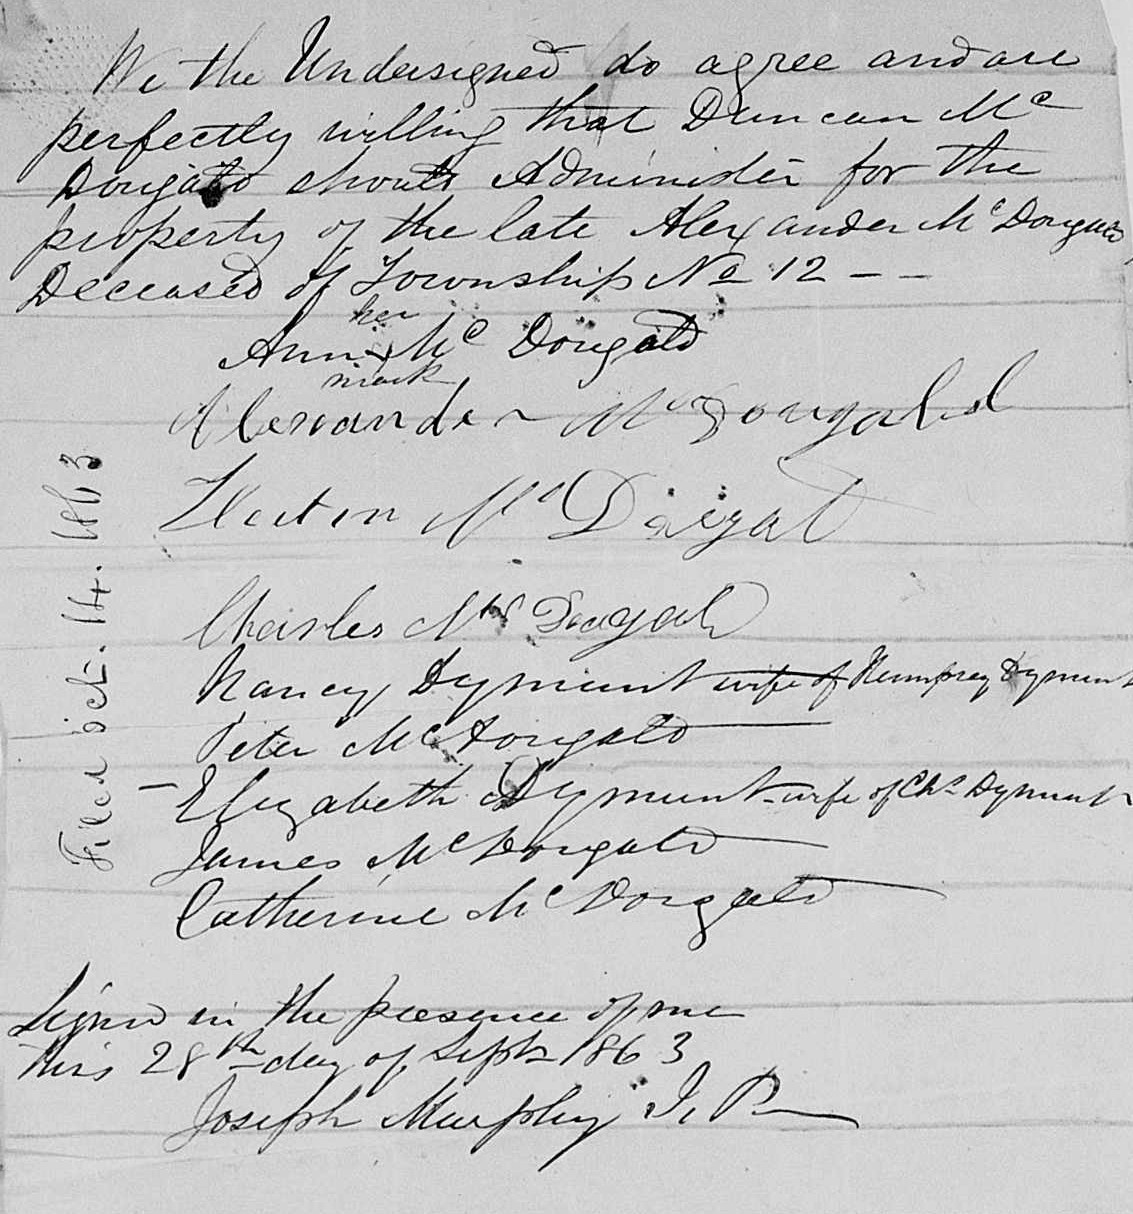 We the Undersigned do agree and are
perfectly willing that Duncan Mc
Dougald should Administer for the
property of the late Alexander Mc Dougald
Deceased of Township No 12 - -
her
Ann X Mc Dougald
mark
Alexander Mc Dougald
Mc
Charles Mc Dougald
Nancy Dymunt wife of Humfrey Dymunt
Peter McDougald
Elizabeth Dymunt - wife of Chs Dymunt
James McDougald
Catherine Mc Dougald
Signed in the presence of me
this 28th day of Sept 1863
Joseph Murphy J. P
Filed Oct. 14. 1863